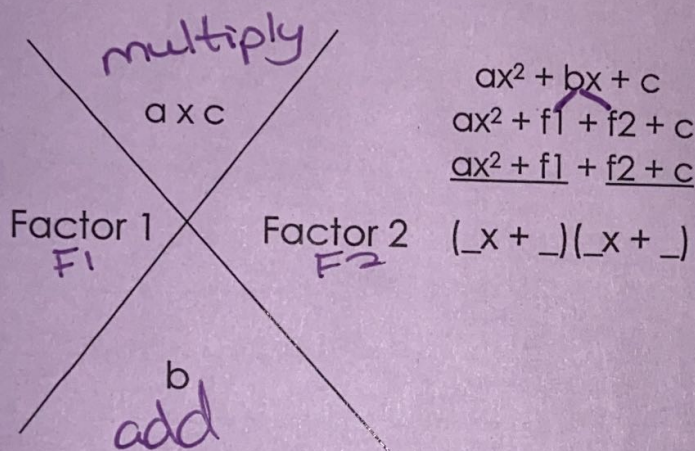 multiply
a x c
Factor 1
F1
Factor 2
F2
b
add
ax² + bx + c
ax² + f1 + f2 + c
ax² + f1 + f2 + c
(_x + _)(_x + _)